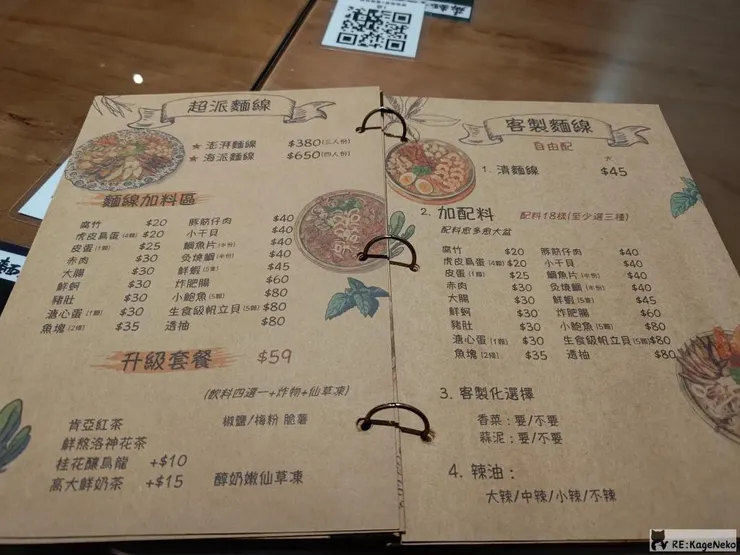 超派麵線
★ 澎湃麵線 $380(三人份)
★ 海派麵線 $650(四人份)
麵線加料區
腐竹 $20 豚筋仔肉 $40
虎皮鳥蛋(4顆) $20 小干貝 $40
皮蛋(1顆) $25 鯛魚片(半份) $40
赤肉 $30 炙燒鯛(半份) $40
大腸 $30 鮮蝦(5隻) $45
鮮蚵 $30 炸肥腸 $60
豬肚 $30 小鮑魚(5顆) $80
溏心蛋(1顆) $30 生食級帆立貝(5顆) $80
魚塊(2條) $35 透抽 $80
升級套餐 $59
(飲料四選一+炸物+仙草凍)
肯亞紅茶 椒鹽/梅粉 脆薯
鮮熬洛神花茶
桂花釀烏龍 +$10
高大鮮奶茶 +$15 醇奶嫩仙草凍
客製麵線
自由配
大
1. 清麵線 $45
2. 加配料 配料18樣(至少選三種)
配料愈多愈大盆
腐竹 $20 豚筋仔肉 $40
虎皮鳥蛋(4顆) $20 小干貝 $40
皮蛋(1顆) $25 鯛魚片(半份) $40
赤肉 $30 炙燒鯛(半份) $40
大腸 $30 鮮蝦(5隻) $45
鮮蚵 $30 炸肥腸 $60
豬肚 $30 小鮑魚(5顆) $80
溏心蛋(1顆) $30 生食級帆立貝(5顆) $80
魚塊(2條) $35 透抽 $80
3. 客製化選擇
香菜：要/不要
蒜泥：要/不要
4. 辣油：
大辣/中辣/小辣/不辣
RE:KageNeko